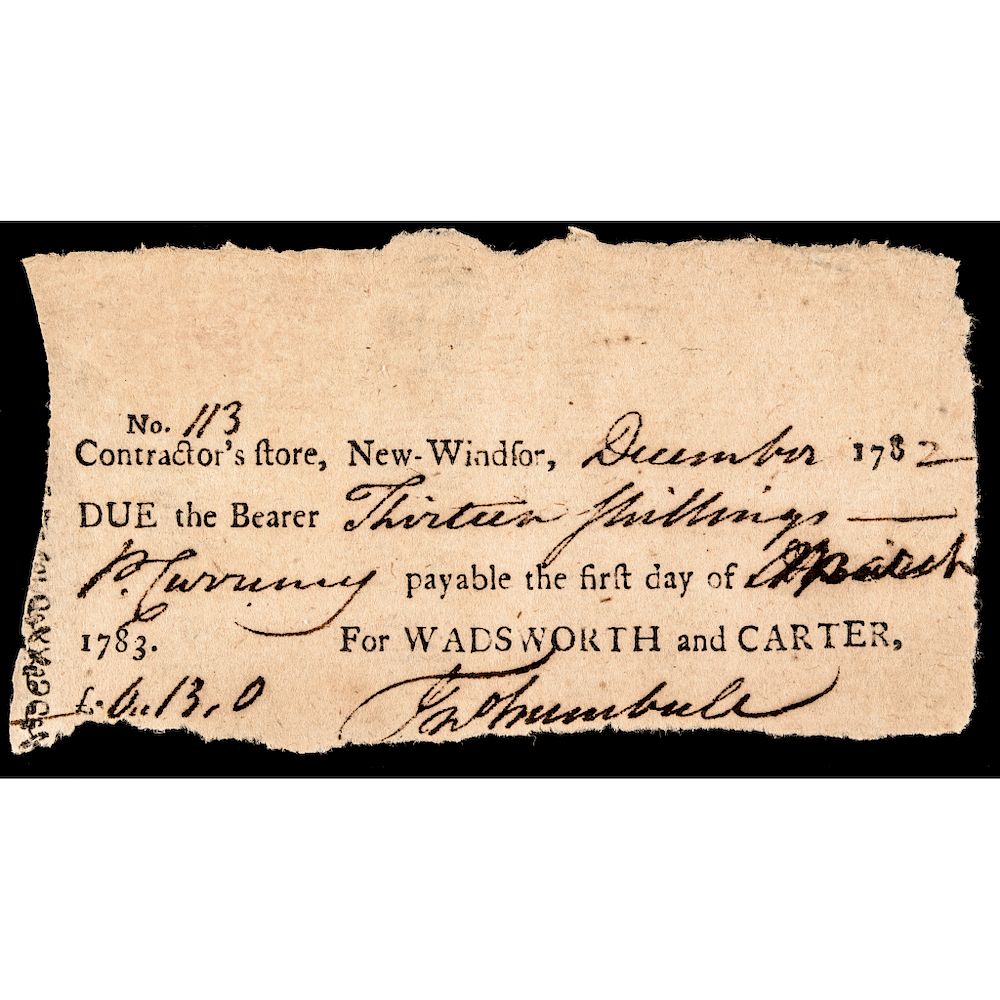 No. 113
Contractor's ſtore, New-Windſor, December 1782
DUE the Bearer Thirteen ſhillings
P. Curruncy payable the firſt day of March
1783. For WADSWORTH and CARTER,
£. 0.. 13, 0 Jno Trumbull